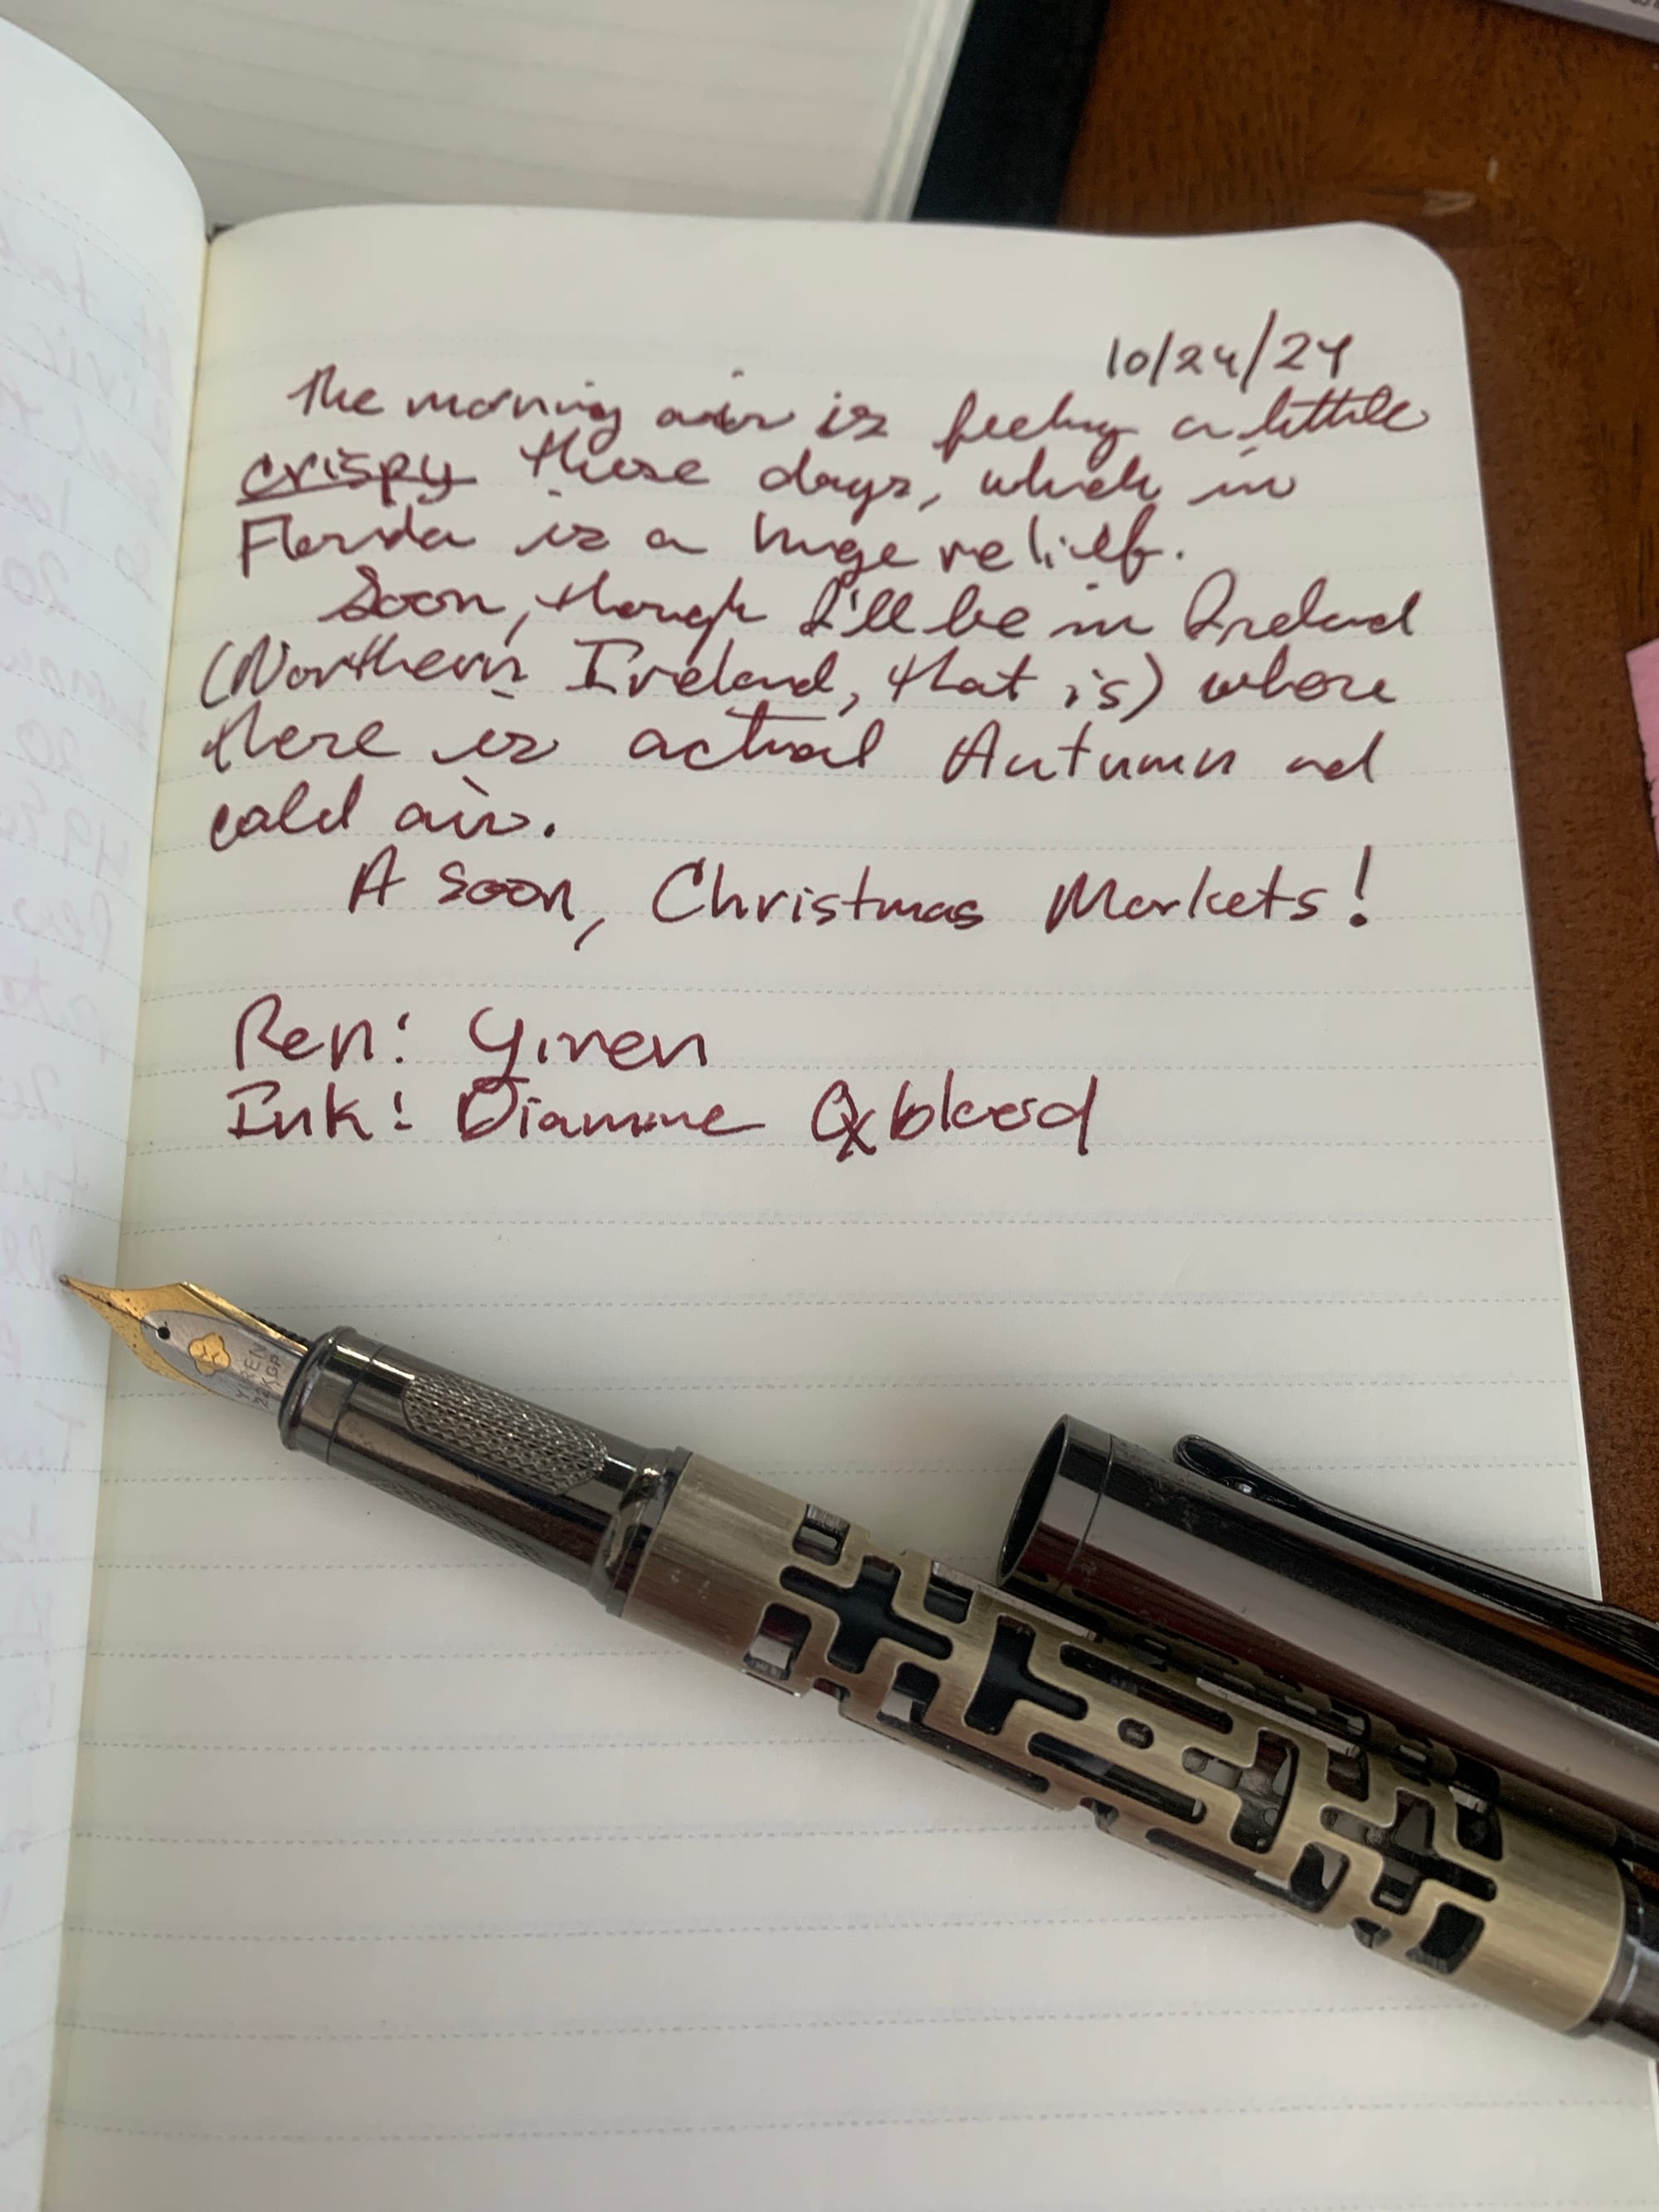 10/24/24
The morning air is feeling a little
crispy these days, which in
Florida is a huge relief.
Soon, though I'll be in Ireland
(Northern Ireland, that is) where
there is actual Autumn ad
cold air.
A soon, Christmas Markets!
Pen: Yiren
Ink: Diamine Oxblood
YIREN
22KGP